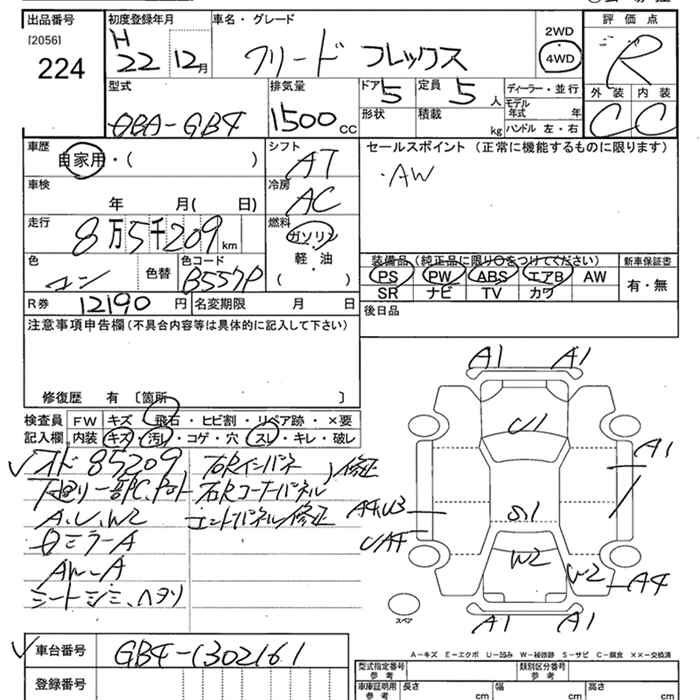 出品番号 初度登録年月 車名・グレード 2WD 評価点
[2056] H 22 12月 フリード フレックス 4WD R
224 型式 排気量 ドア 5 定員 5人 ディーラー・並行 外装 内装
DBA-GB4 1500cc 形状 積載 kg モデル年式 年 C C
ハンドル 左・右
車歴 シフト セールスポイント (正常に機能するものに限ります)
自家用・( ) AT ・AW
車検 冷房
年 月( 日) AC
走行 燃料
8万5千209km ガソリン
軽・油
( )
色 色替 色コード B557P 装備品(純正品に限り○をつけてください) 新車保証書
コン PS PW ABS エアB AW 有・無
SR ナビ TV カワ
R券 12190円 名変期限 月 日 後日品
注意事項申告欄(不具合内容等は具体的に記入して下さい)
修復歴 有 〔箇所 〕
検査員 FW キズ・飛石・ヒビ割・リペア跡・×要
記入欄 内装 キズ・汚レ・コゲ・穴・スレ・キレ・破レ
オド85209 右Rインパネ
下廻り一部P.C. 右Rコーナーパネル 修正
A.U.W2 エンドパネル修正
ミラーA
AW-A
シートシミ、ヘタリ
A1 A1
U1
A1
A4U3
S1
U/A4
W2
U2
A4
A1 A1
スペア
A-キズ E-エクボ U-凹み W-補修跡 S-サビ C-腐食 XX-交換済
車台番号 GB4-1302161
登録番号
型式指定番号 参考 類別区分番号 参考
車庫証明用 参考 長さ cm 幅 cm 高さ cm